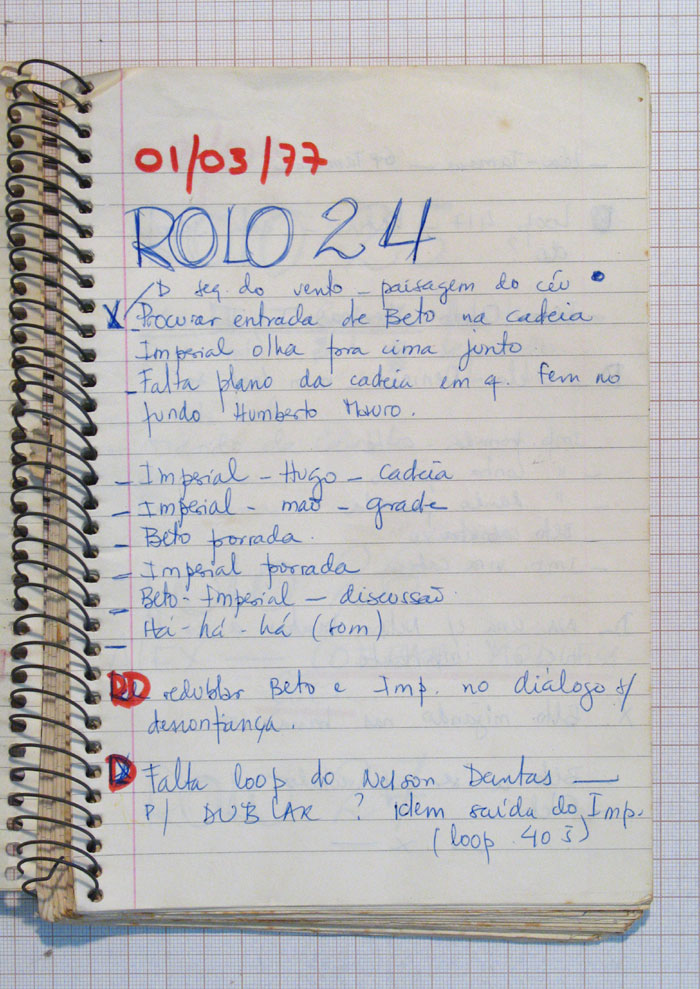 01/03/77
ROLO 24
D seq. do vento - paisagem do céu
X Procurar entrada de Beto na cadeia
Imperial olha pra cima junto
- Falta plano da cadeia em q. tem no
fundo Humberto Mauro.
- Imperial - Hugo - cadeia
- Imperial - mão - grade
- Beto porrada.
- Imperial porrada
- Beto - Imperial - discussão.
- Há - há - há (som)
D redublar Beto e Imp. no diálogo s/
desconfiança.
D Falta loop do Nelson Dantas —
P/ DUBLAR ? idem saída do Imp.
(loop 40